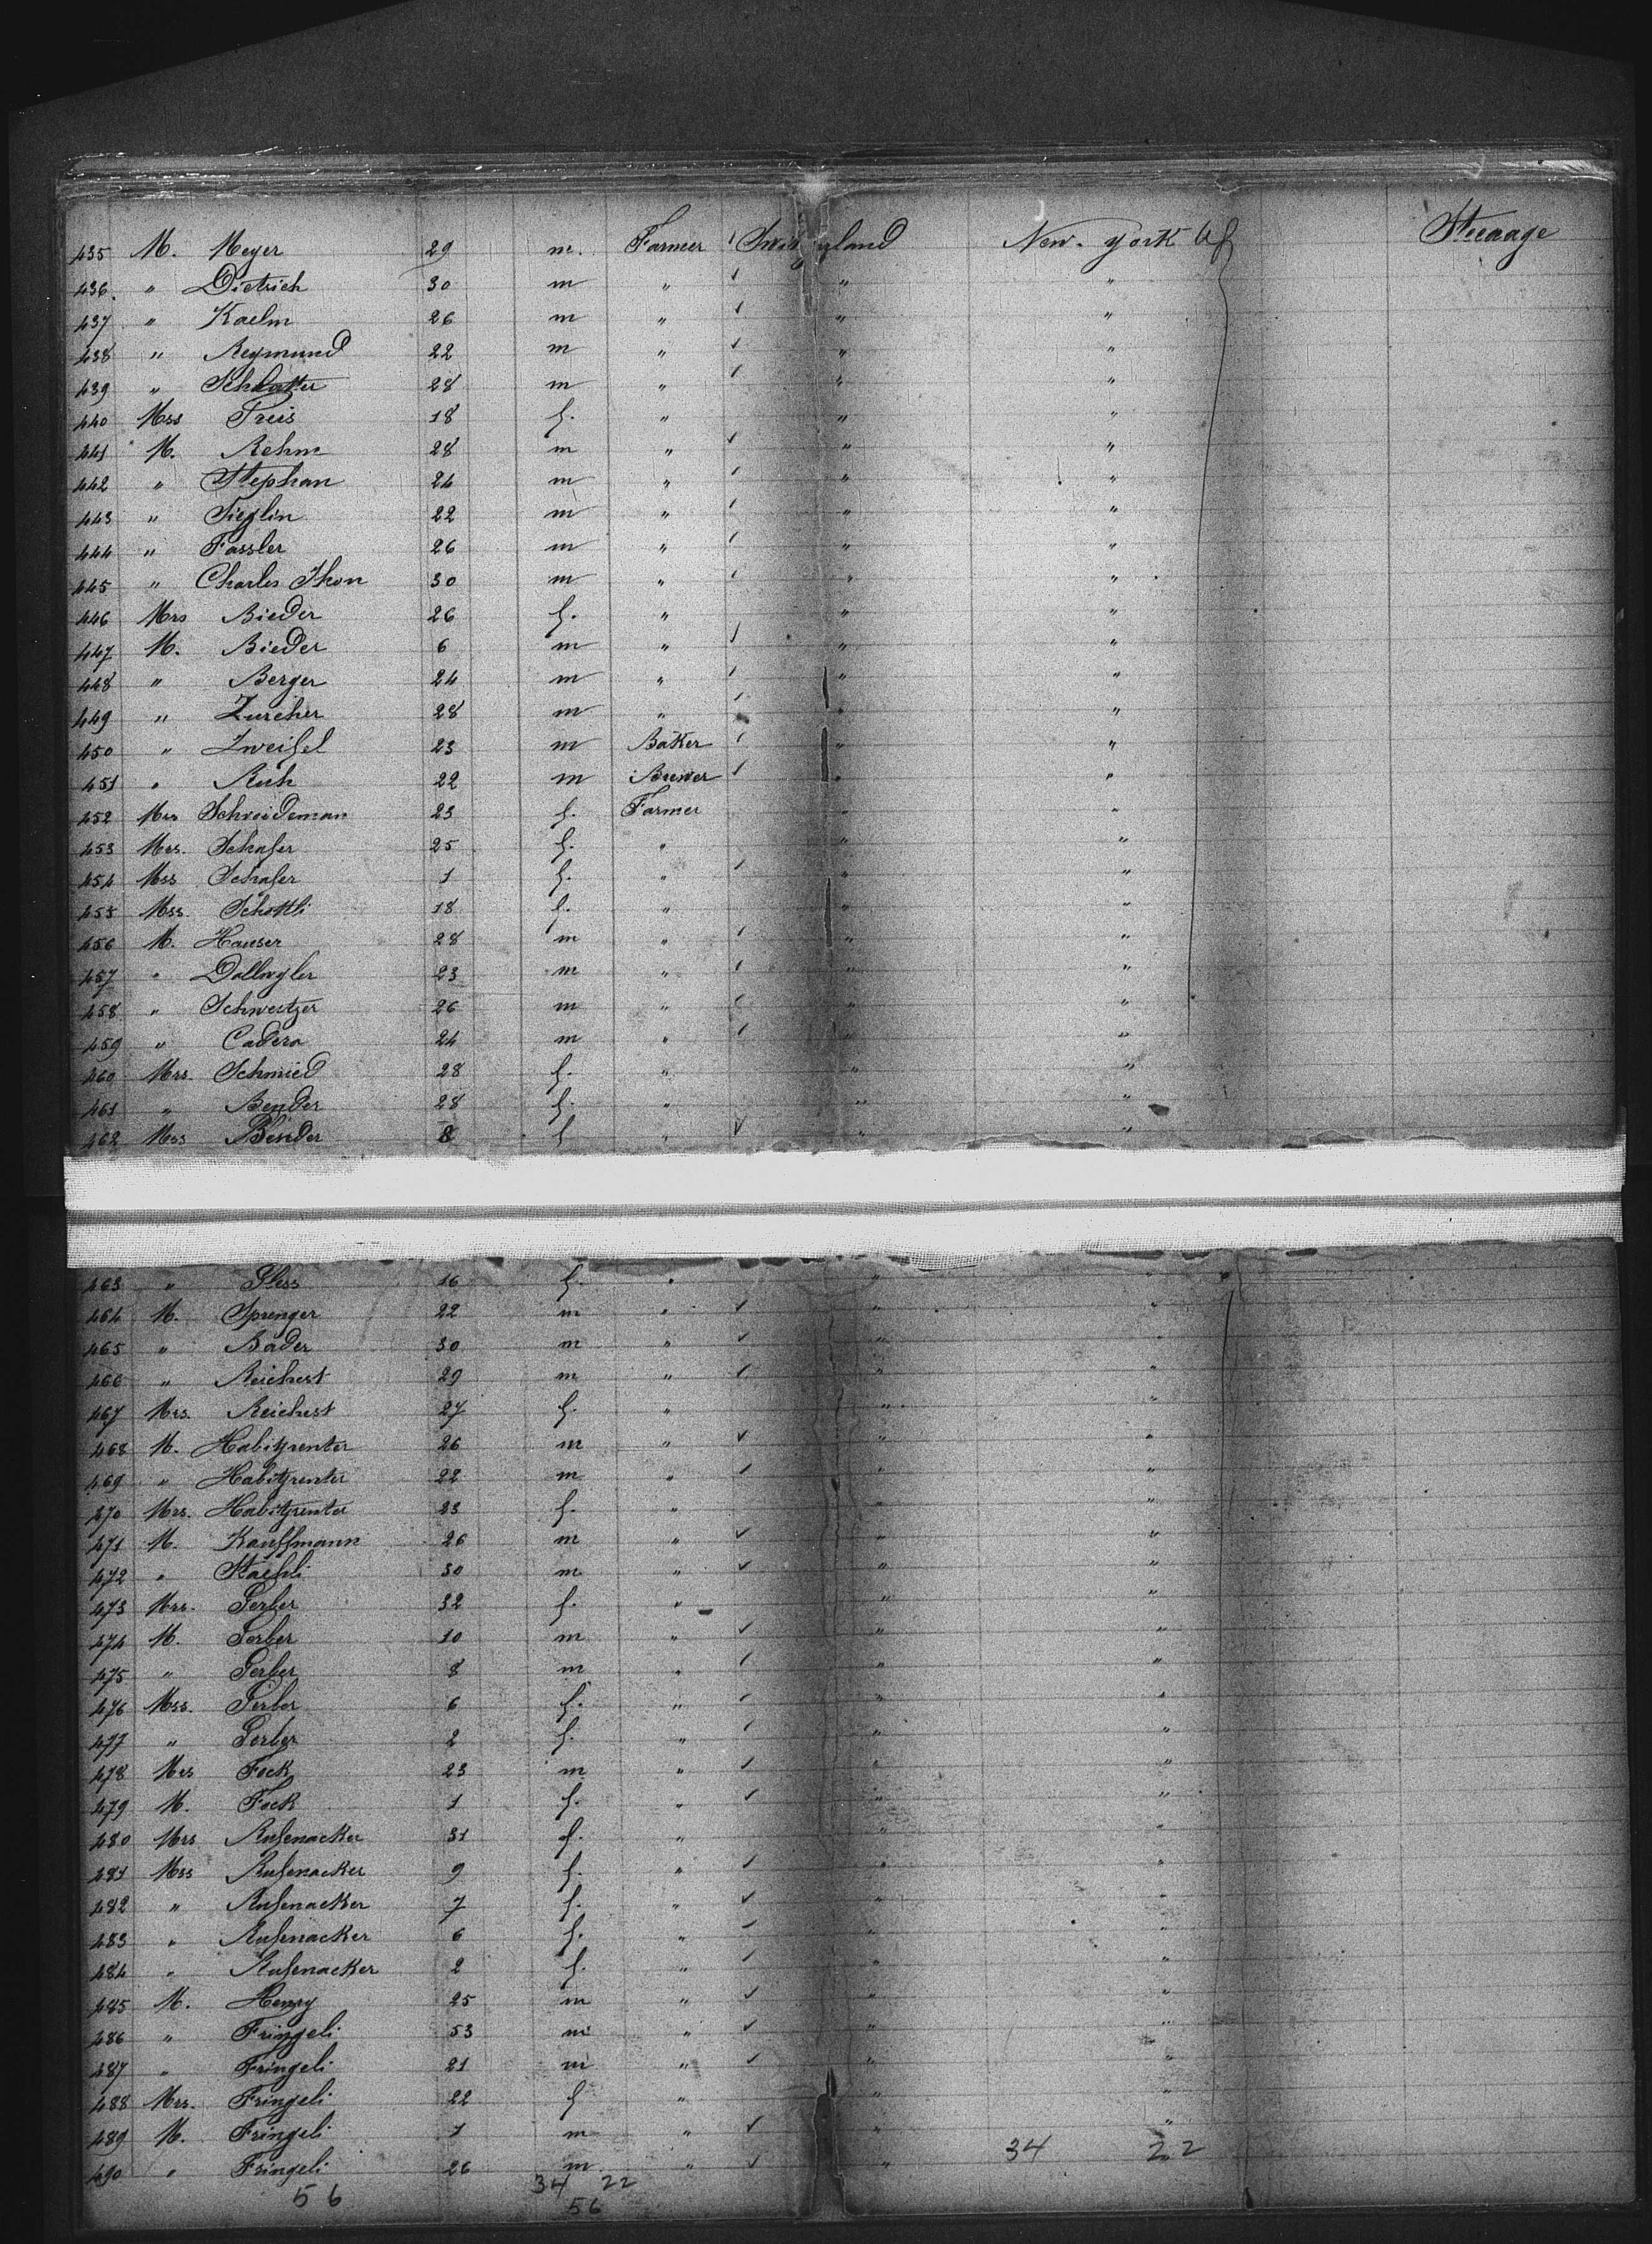 435 M. Meyer 29 m. Farmer Switzerland New-York Steeaage
436. " Dietrich 30 m " " "
437 " Kaelm 26 m " " "
438 " Reymund 22 m " " "
439 " Schlatter 28 m " " "
440 Mss Treis 18 f. " " "
441 M. Rehm 28 m " " "
442 " Stephan 24 m " " "
443 " Sieglin 22 m " " "
444 " Fassler 26 m " " "
445 " Charles Jhon 30 m " " "
446 Mrs Bieder 26 f. " " "
447 M. Bieder 6 m " " "
448 " Berger 24 m " " "
449 " Zurcher 28 m " " "
450 " Zweifel 23 m Baker " "
451 " Ruh 22 m Brewer " "
452 Mrs Schneideman 23 f. Farmer " "
453 Mrs. Schafer 25 f. " " "
454 Mss Schafer 1 f. " " "
455 Mss. Schottli 18 f. " " "
456 M. Hauser 28 m " " "
457 " 23 m " " "
458 " Schweitzer 26 m " " "
459 " Cadera 24 m " " "
460 Mrs. Schmied 28 f. " " "
461 " Bender 28 f. " " "
462 Mss Bender 8 f " " "
463 " 16 f. " " "
464 M. Sprenger 22 m " " "
465 " Bader 30 m " " "
466 " Reichert 29 m " " "
467 Mrs. Reichert 27 f. " " "
468 M. Habitzrenter 26 m " " "
469 " Habitzrenter 22 m " " "
470 Mrs. Habitzrenter 23 f. " " "
471 M. Kauffmann 26 m " " "
472 " Staehli 30 m " " "
473 Mrs. Gerber 32 f. " " "
474 M. Gerber 10 m " " "
475 " Gerber 8 m " " "
476 Mss. Gerber 6 f. " " "
477 " Gerber 2 f. " " "
478 Mrs Fock 23 m " " "
479 M. Fock 1 f. " " "
480 Mrs Rufenacker 31 f. " " "
481 Mss Rufenacker 9 f. " " "
482 " Rufenacker 7 f. " " "
483 " Rufenacker 6 f. " " "
484 " Rufenacker 2 f. " " "
485 M. Henry 25 m " " "
486 " Fringeli 53 m " " "
487 " Fringeli 21 m " " "
488 Mrs. Fringeli 22 f " " "
489 M. Fringeli 1 m " " "
490 " Fringeli 26 m " " 34 22
56 34 22
56